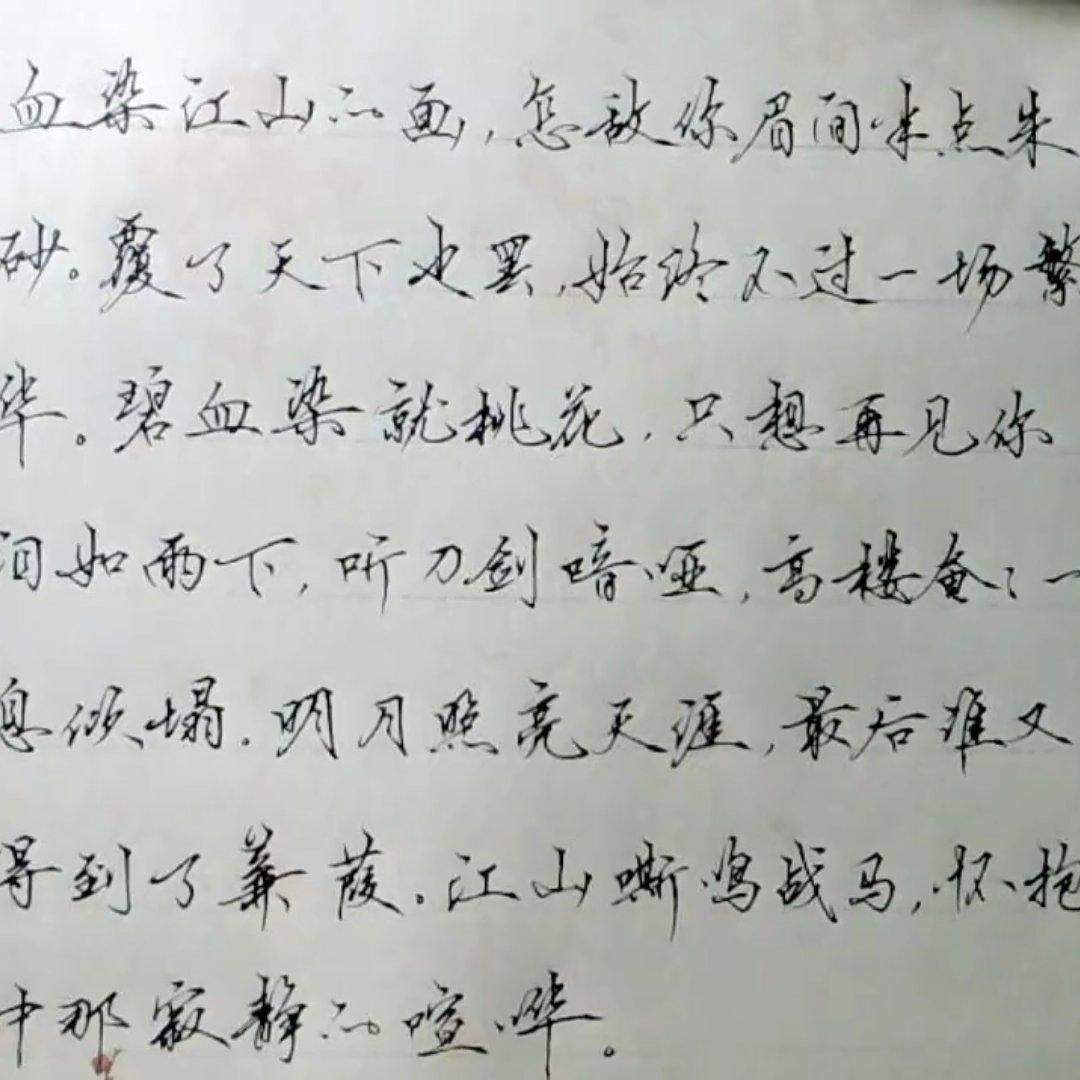 血染江山的画,怎敌你眉间一点朱
砂。覆了天下也罢,始终不过一场繁
华。碧血染就桃花,只想再见你
泪如雨下,听刀剑喑哑,高楼奄奄一
息倾塌.明月照亮天涯,最后谁又
得到了蒹葭.江山嘶鸣战马,怀抱
中那寂静的喧哗。